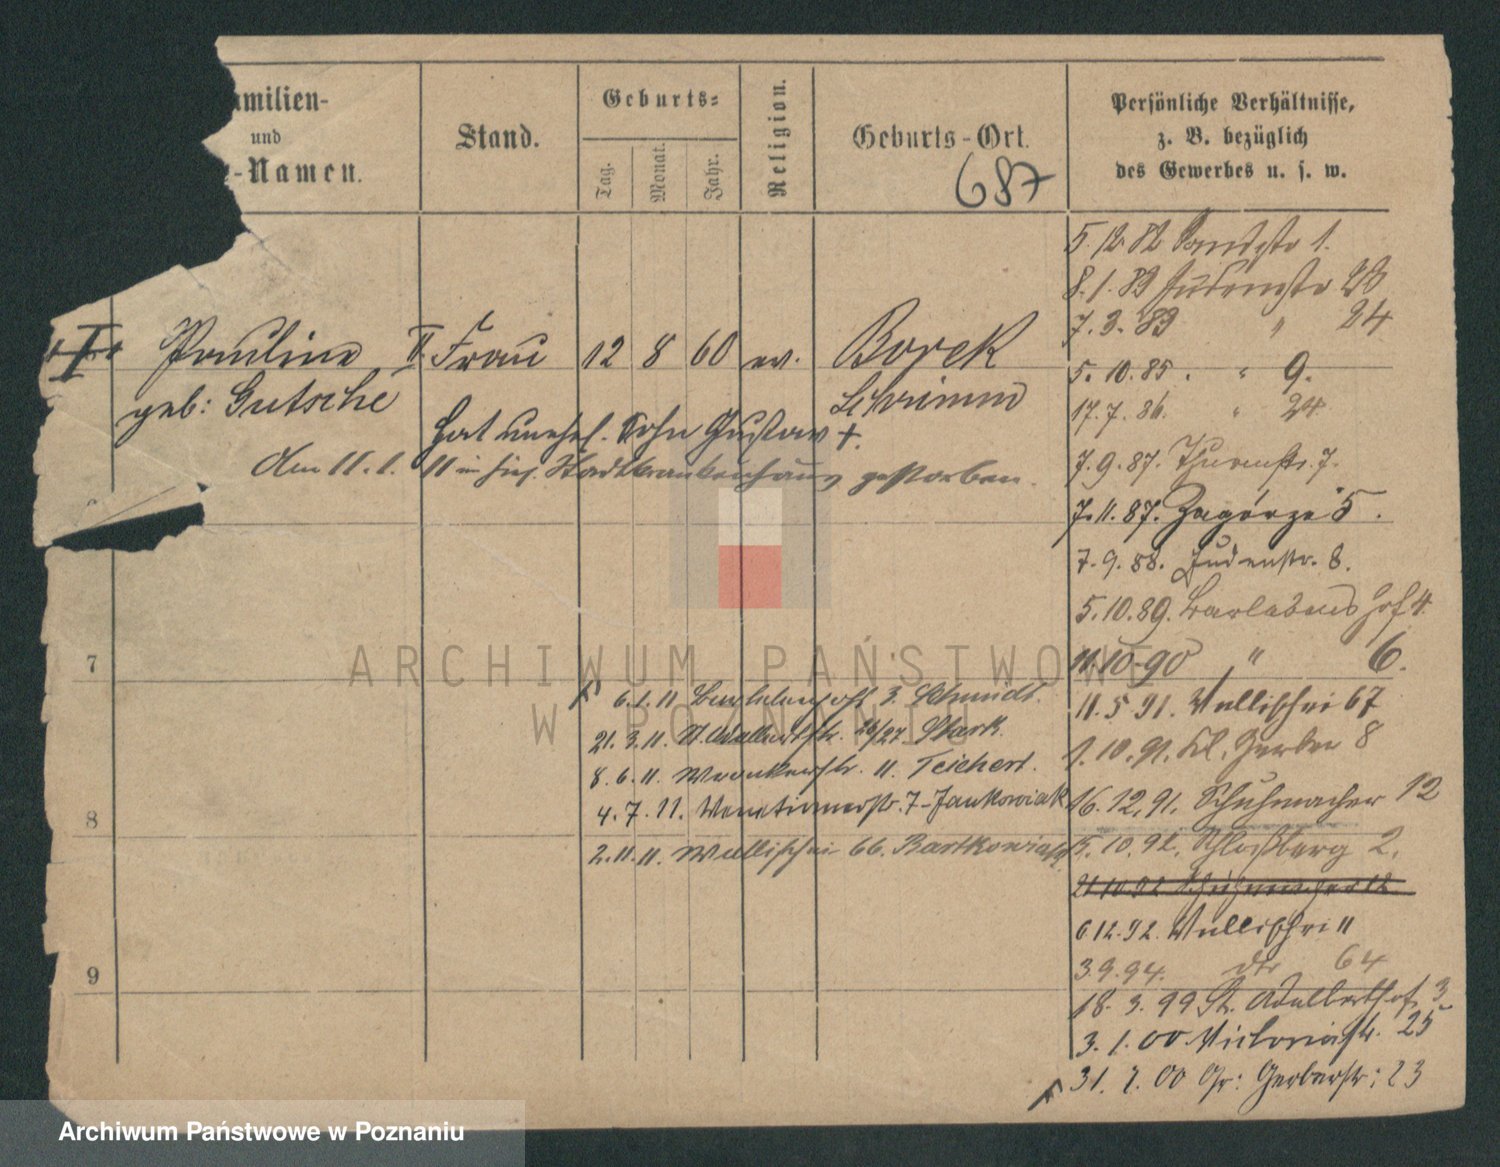 amilien-
und
-Namen.
Stand.
Geburts-
Tag.
Monat.
Jahr.
Religion.
Geburts-Ort.
687
Persönliche Verhältnisse,
z. B. bezüglich
des Gewerbes u. s. w.
I Pauline II. Frau 12 8 60 ev. Borek
geb: Gutsche Schrimm
Hat unehel. Sohn Gustav +.
den 11.1.11 im hies. Stadtkrankenhaus gestorben.
7
8
9
6.1.11 3. Schmidt.
21.3.11. St. Adalbertstr. 26/27 Stark.
8.6.11. Wronkerstr. 11. Teichert.
4.7.11. Venetianerstr. 7-Jankowiak
2.11.11. Wallischei 66. Bartkowiak
5.12.82 Sandstr 1.
8.1.83 Judenstr 23
7.3.83 " 24
5.10.85. " 9.
17.7.86. " 24
7.9.87. Thurmstr. 7.
7.11.87. Zagórze 5.
7.9.88. Judenstr. 8.
5.10.89. Barlebens Hof 4.
11.10.90 " 6.
11.5.91. Wallischei 67
1.10.91. Kl. Gerber 8
16.12.91. Schuhmacher 12
15.10.92. Schloßberg 2.
21.10.92 Schuhmacher 12
6.12.92. Wallischei 11
3.9.94. dto 64
18.3.99 St. Adalberthof. 3
3.1.00 Victoriastr. 25
31.7.00 Gr: Gerberstr: 23
ARCHIWUM PAŃSTWOWE
W POZNANIU
Archiwum Państwowe w Poznaniu